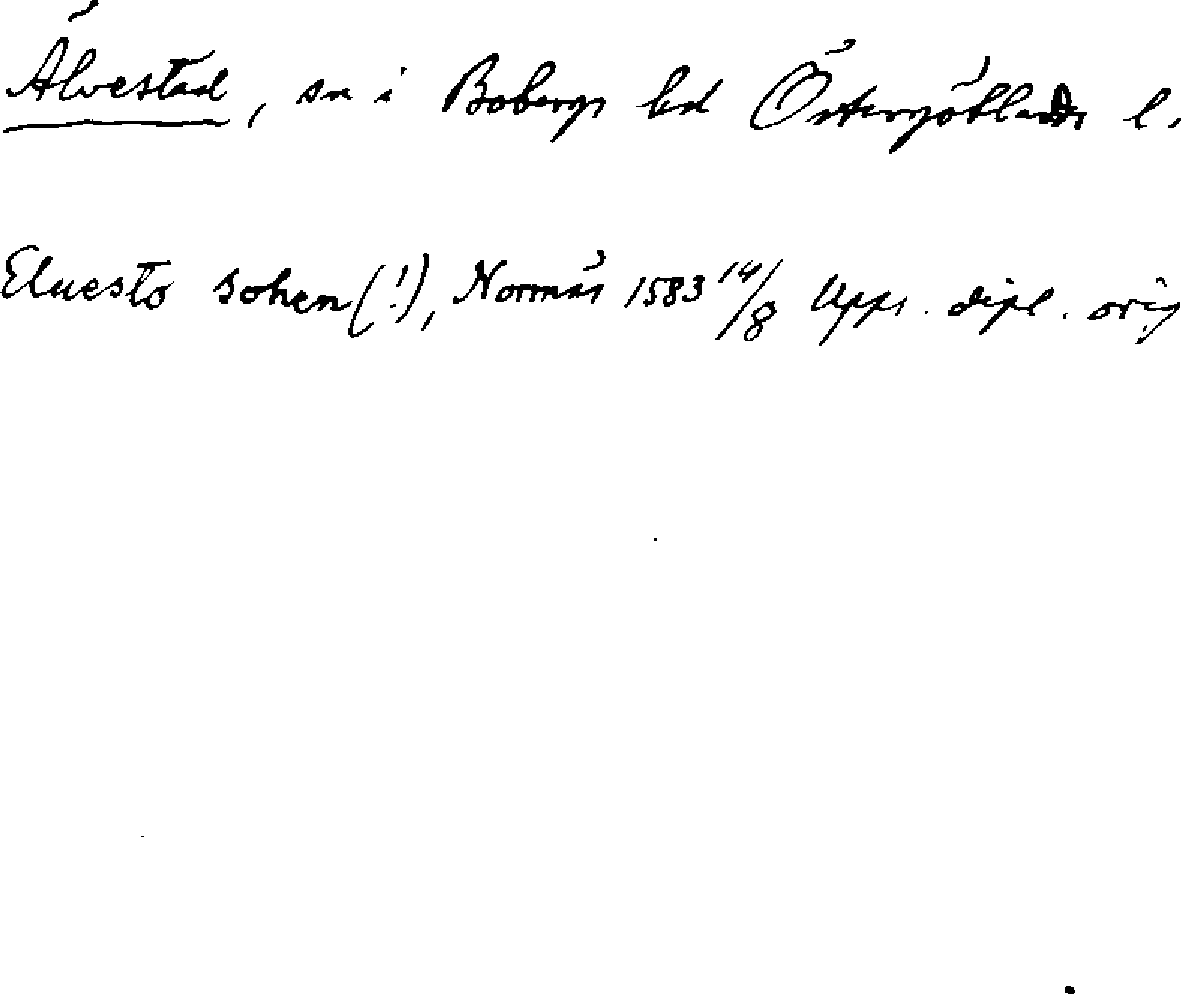 Älvestad, sn i Bobergs hd Östergötlands l.
Eluesto sohen(!), Normäs 1583 14/8 Upps. dipl. orig